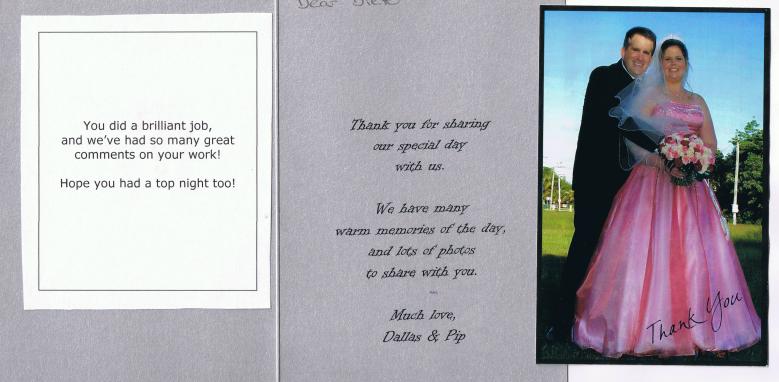 You did a brilliant job,
and we've had so many great
comments on your work!
Hope you had a top night too!
Dear
Thank you for sharing
our special day
with us.
We have many
warm memories of the day,
and lots of photos
to share with you.
Much love,
Dallas & Pip
Thank You